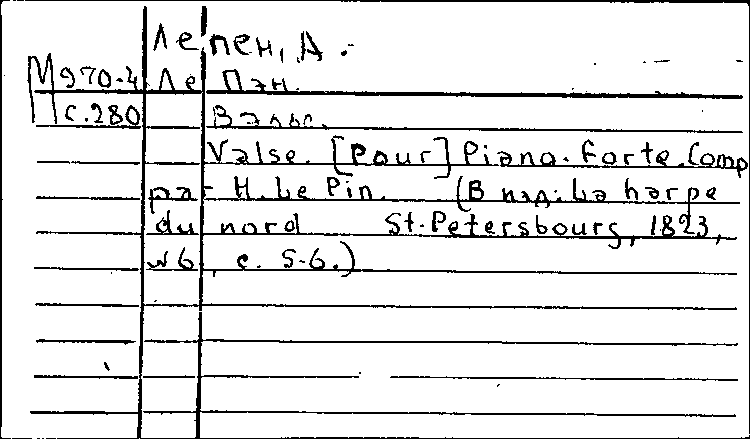 Лепен, А.
М970-4 Ле Пэн.
с.280 Вальс.
Valse. [Pour] Piano-forte. Comp
par H. Le Pin. (В изд: La harpe
du nord St-Petersbourg, 1823,
№6, с. 5-6.)